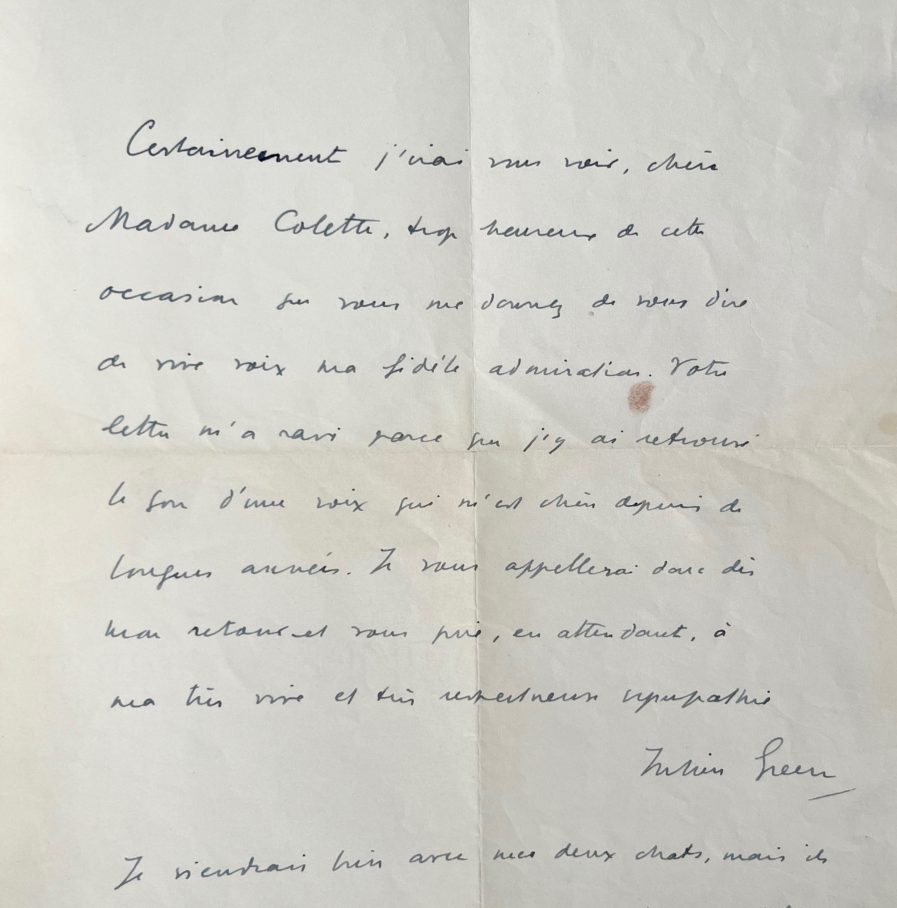 Certainement j'irai vous voir, chère
Madame Colette, trop heureux de cette
occasion que vous me donnez de vous dire
de vive voix ma fidèle admiration. Votre
lettre m'a ravi parce que j'y ai retrouvé
le son d'une voix qui m'est chère depuis de
longues années. Je vous appellerai donc dès
mon retour et vous prie, en attendant, à
ma très vive et très respectueuse sympathie
Julien Green
Je viendrais bien avec mes deux chats, mais ils